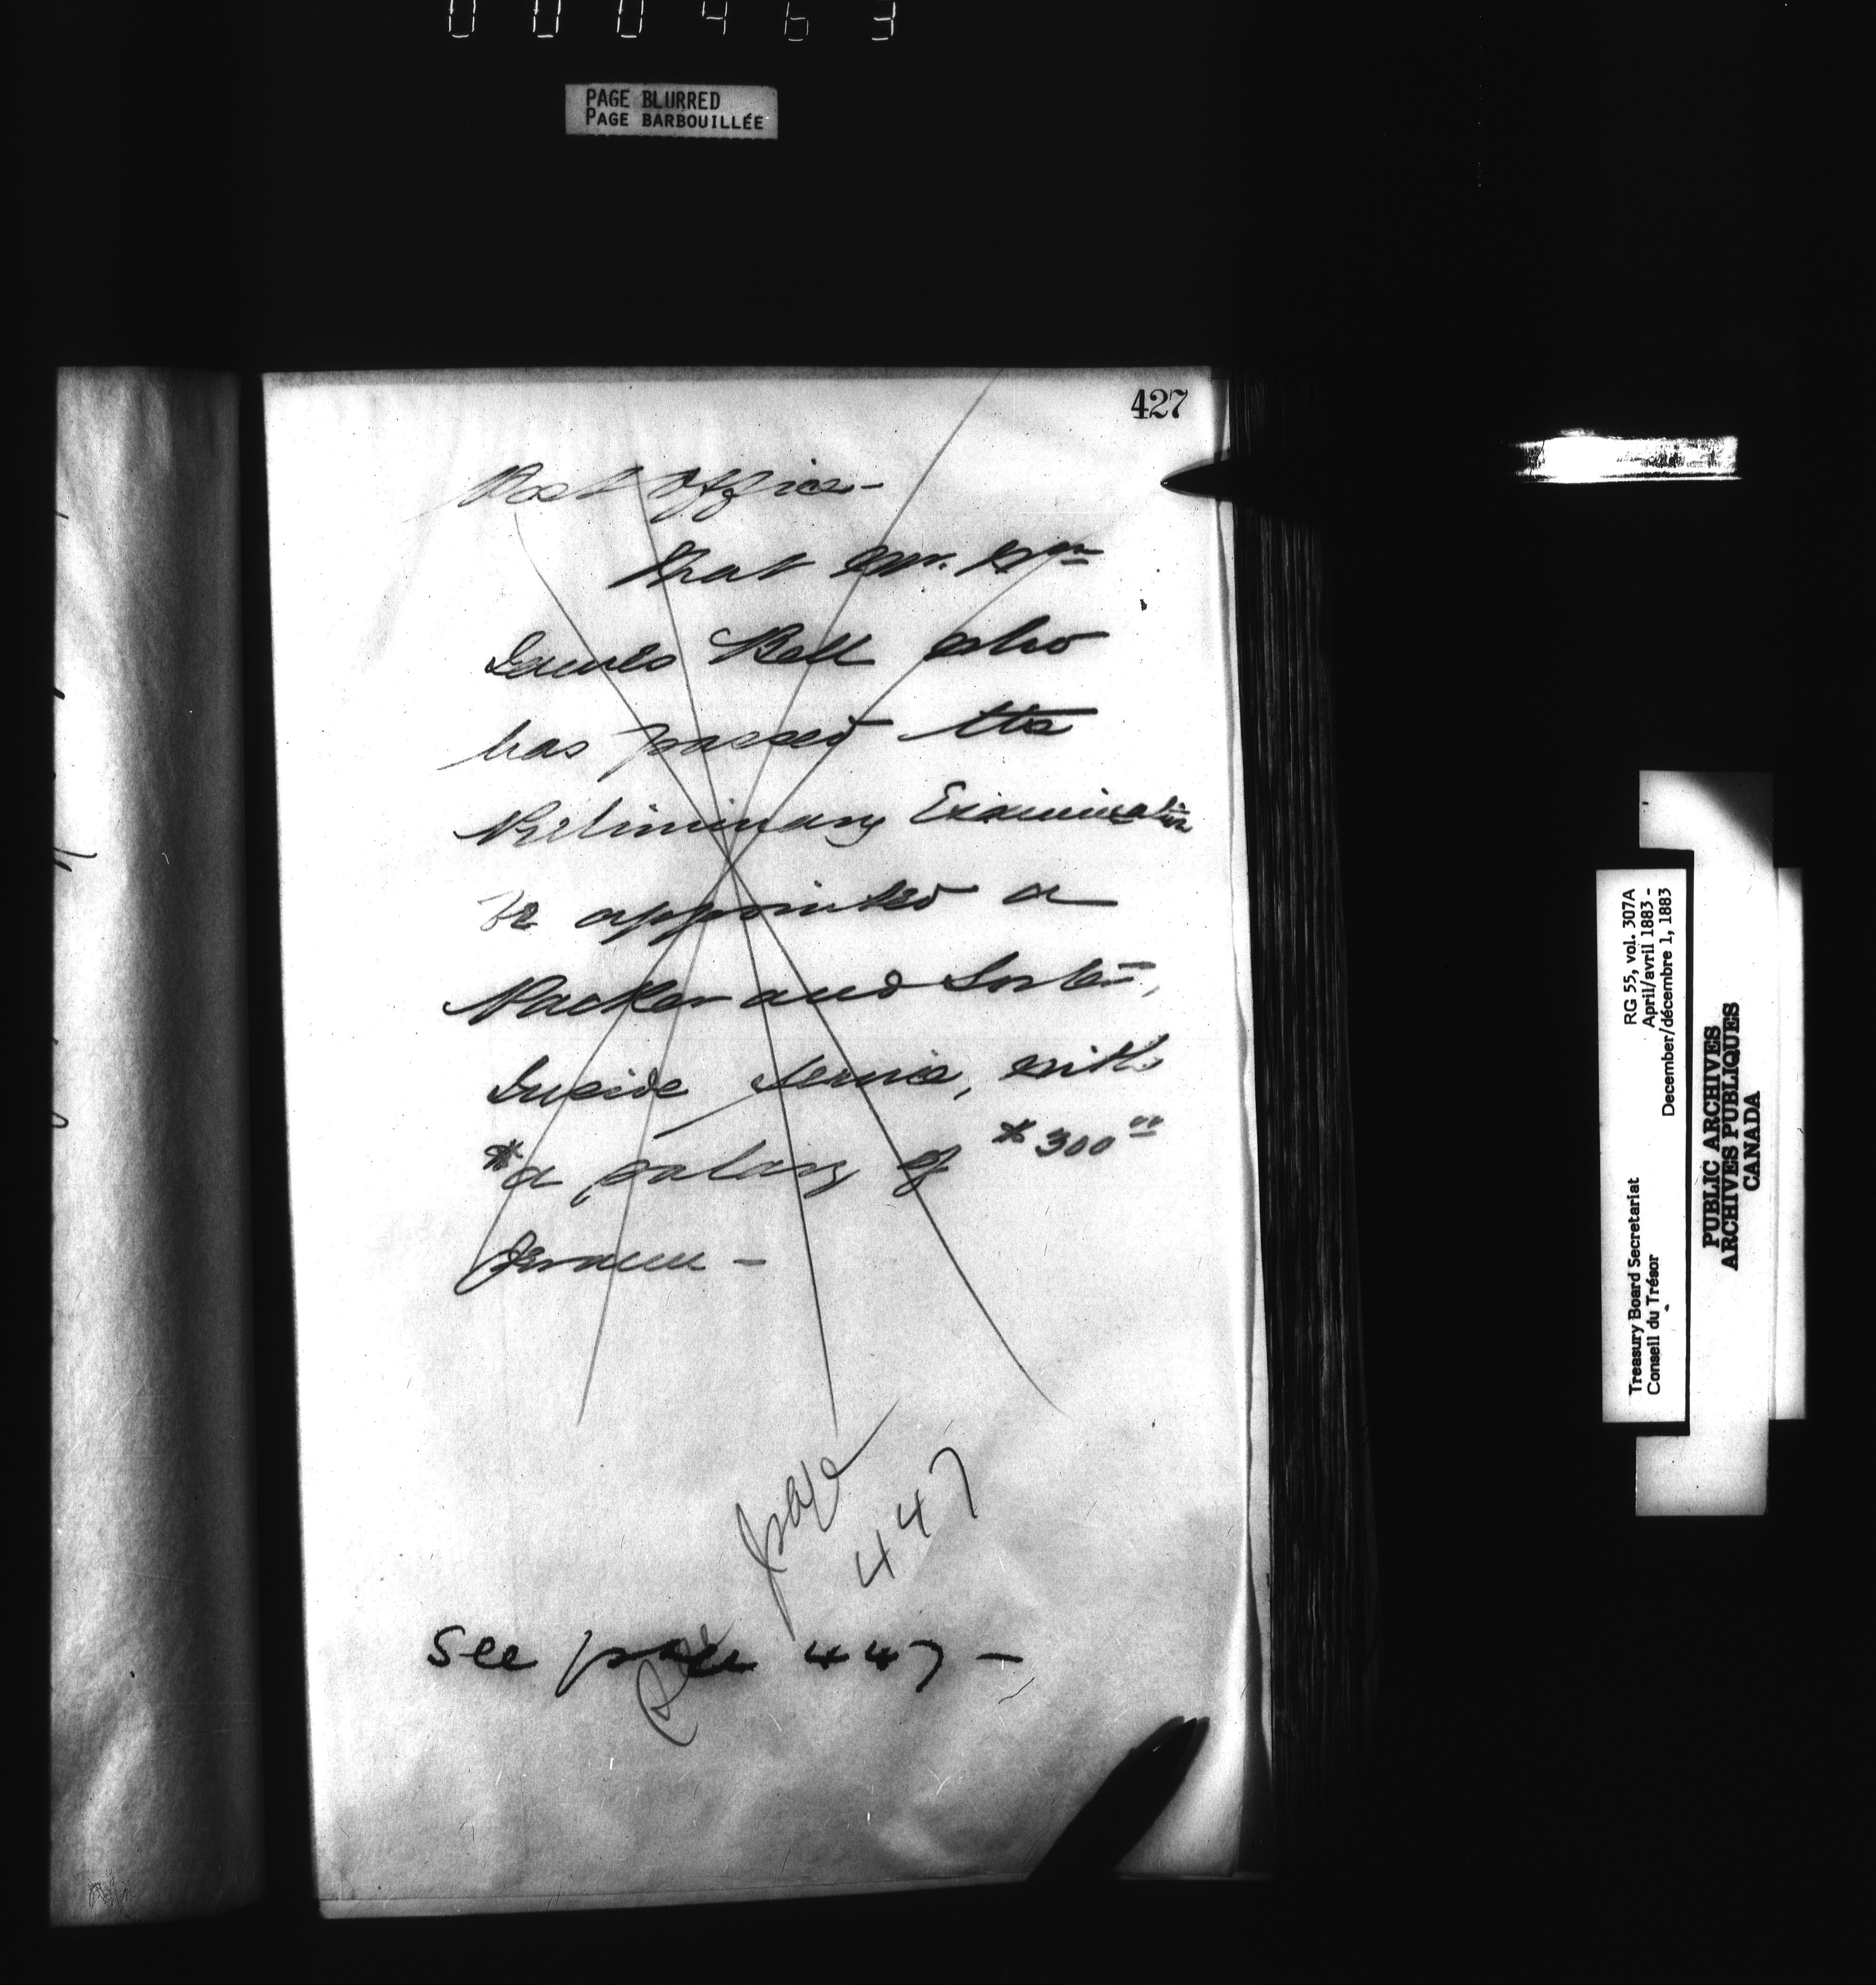 000463
PAGE BLURRED
PAGE BARBOUILLÉE
427
Post Office-
That Mr. Wm
James Bell who
has passed the
Preliminary Examination
be appointed a
Packer and Sorter,
Inside Service, with
*a salary of *300 00
per annum -
page
447
See page 447 -
RG 55, vol. 307A
April/avril 1883 -
December/décembre 1, 1883
Treasury Board Secretariat
Conseil du Trésor
PUBLIC ARCHIVES
ARCHIVES PUBLIQUES
CANADA